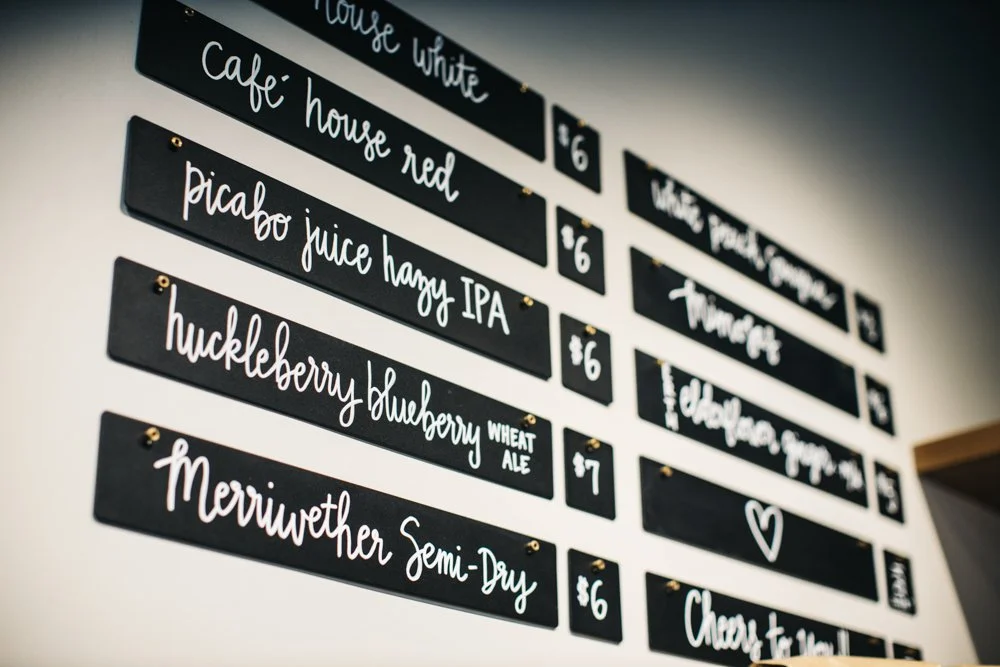 house white $6
Café house red $6
picabo juice hazy IPA $6
huckleberry blueberry WHEAT ALE $7
Merriwether Semi-Dry $6
white peach
mimosas
elderflower ginger
Cheers to You!